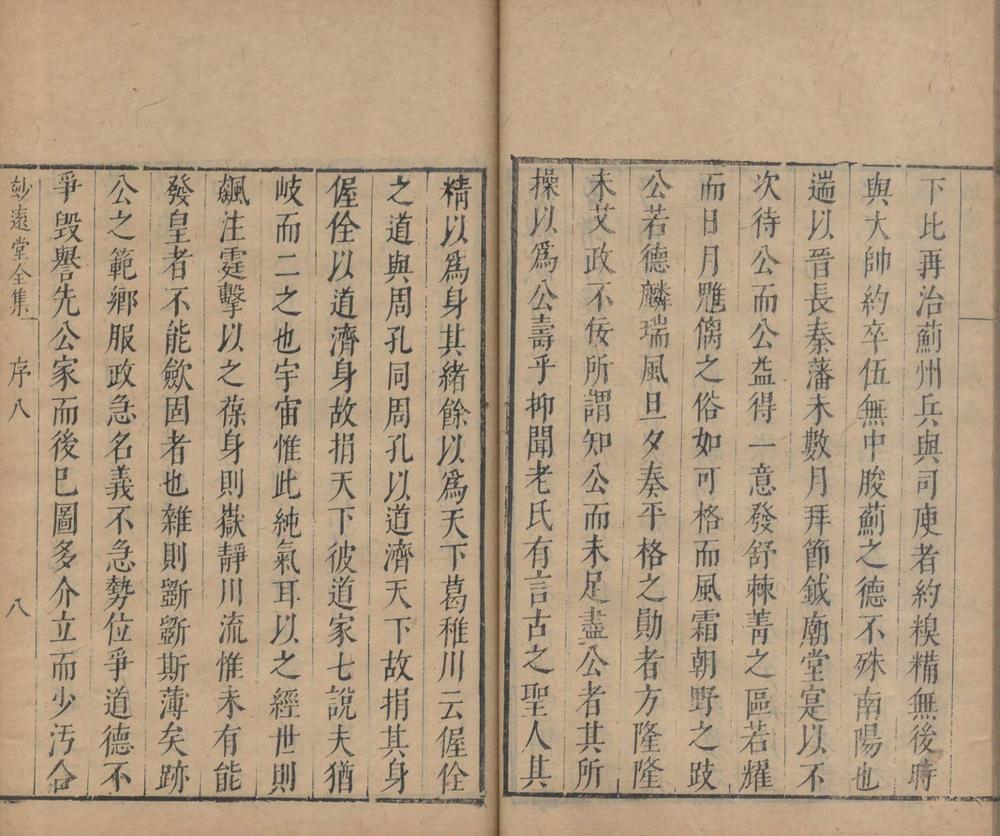 下比再治薊州兵與司庾者約糗糒無後時
與大帥約卒伍無中朘薊之德不殊南陽也
遄以晉長秦藩未數月拜節鉞廟堂寔以不
次待公而公益得一意發舒棘菁之區若耀
而日月雕僞之俗如可格而風霜朝野之跂
公若德麟瑞風旦夕奏平格之勛者方隆隆
未艾政不佞所謂知公而未足盡公者其所
操以爲公壽乎抑聞老氏有言古之聖人其
精以爲身其緒餘以爲天下葛稚川云偓佺
之道與周孔同周孔以道濟天下故捐其身
偓佺以道濟身故捐天下彼道家七說夫猶
岐而二之也宇宙惟此純氣耳以之經世則
飆注霆擊以之葆身則嶽靜川流惟未有能
發皇者不能歛固者也雜則斵斵斯薄矣跡
公之範鄉服政急名義不急勢位爭道德不
爭毀譽先公家而後巳圖多介立而少汚合
玅遠堂全集 序八 八